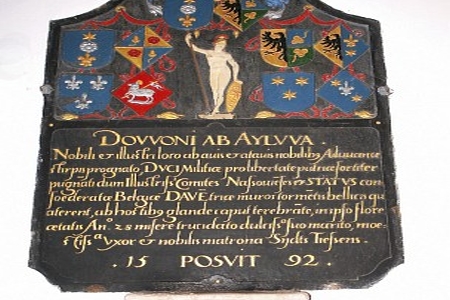 DOVVONI AB AYLVVA
Nobili & illustri loro ab auis & atauis nobilibus
stirpis prognato DVCI Militiæ pro libertate patriæ fortiter
pugnāti dum Illustriss. Comites Nassouiēses & STATVS con
foederatæ Belgicæ DAVĒtriæ muros tormētis bellicis qua
terent, ab hostibus glande caput terebrate, in ipso flore
ætatis An.º 28 misere trucidato dulciss.º suo marito, moe
stiss.ª vxor & nobilis matrona
15 POSVIT 92